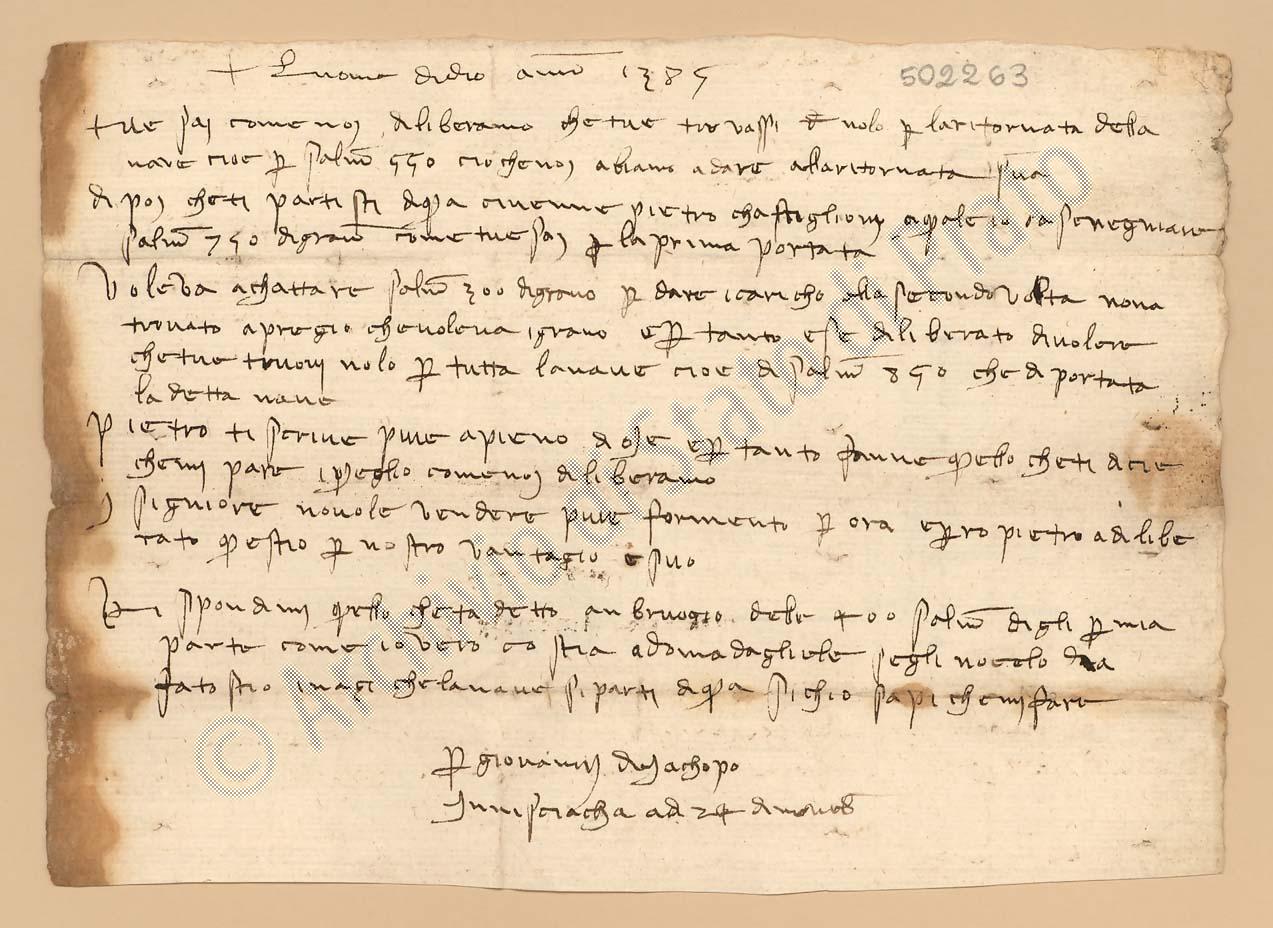 + Al nome di dio amen 1385
502263
tue sai come noi diliberamo che tue trovassi nolo p laritornata della
nave cioe p salm 550 cio che noi abiamo a dare allaritornata sua
di poi cheti partisti diqua civenne pietro chastiglioni aquale io
salm 750 digrano come tue sai p la prima portata
voleva achattare salm 300 digrano p dare icaricho alla seconda volta nona
trovato apregio chevoleva igrano e p tanto ese diliberato divolere
che tue truovi nolo p tutta lanave cioe di salm 850 che di portata
la detta nave
pietro ti scrive piue apieno di cio e p tanto fanne quello cheti dicie
chemi pare i meglio come noi diliberamo
i signiore novole vendere piue formento p ora e p ro pietro adilibe
rato questo p nostro vantagio e suo
Rispondimi quello cheta detto anbruogio delle 400 salm digli p mia
parte come io vero costia adomadagliele segli nocelo da
fatostio inazi chelanave si parti diqua sichio sapi chemi fare
p giovanni di iachopo
Inn isciacha a di 24 dinoveb
© Archivio di Stato di Prato